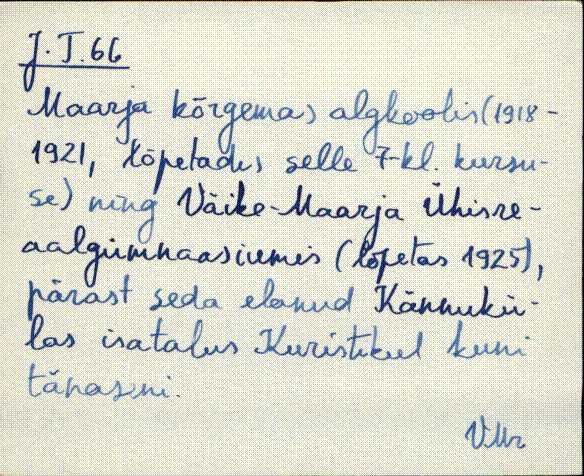 J. T. 66
Maarja kõrgemas algkoolis (1918-
1921, lõpetades selle 7-kl. kursu-
se) ning Väike-Maarja Ühisre-
aalgümnaasiumis (lõpetas 1925),
pärast seda elanud Kännukü-
las isatalus Kuristikul kuni
tänaseni.